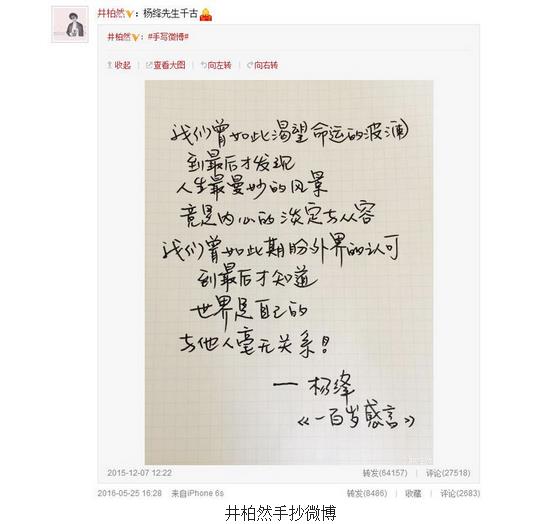 井柏然：杨绛先生千古
井柏然：#手写微博#
收起 | 查看大图 | 向左转 | 向右转
我们曾如此渴望命运的波澜
到最后才发现
人生最曼妙的风景
竟是内心的淡定与从容
我们曾如此期盼外界的认可
到最后才知道
世界是自己的
与他人毫无关系！
— 杨绛
《一百岁感言》
2015-12-07 12:22 转发(64157) | 评论(27518)
2016-05-25 16:28 来自iPhone 6s 转发(8486) | 收藏 | 评论(2683)
井柏然手抄微博